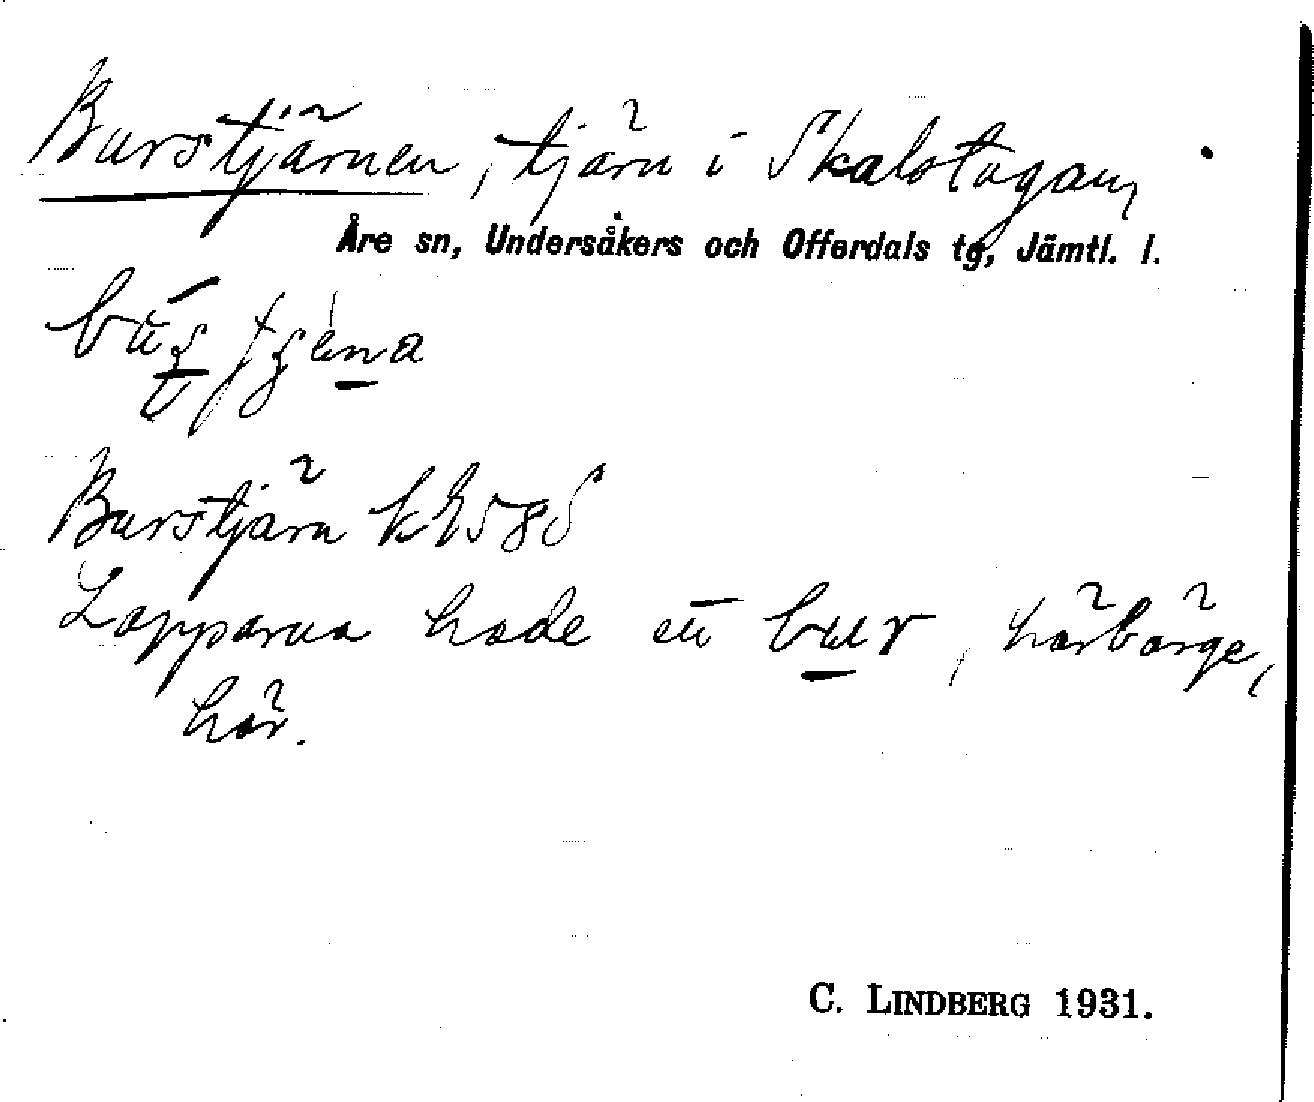 Burstjärnen, tjärn i Skalstugan,
Åre sn, Undersåkers och Offerdals tg, Jämtl. l.
Burstjärn
Lapparna hade ett bur, härbärge,
här.
C. LINDBERG 1931.